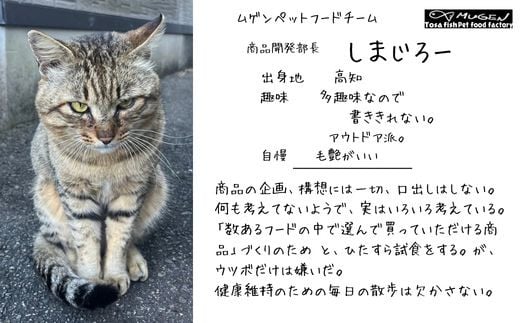 ムゲンペットフードチーム
MUGEN
Tosa Fish Pet Food Factory
商品開発部長 しまじろー
出身地 高知
趣味 多趣味なので
書ききれない。
アウトドア派。
自慢 毛艶がいい
商品の企画、構想には一切、口出しはしない。
何も考えてないようで、実はいろいろ考えている。
「数あるフードの中で選んで買っていただける商
品」づくりのため と、ひたすら試食をする。が、
ウツボだけは嫌いだ。
健康維持のための毎日の散歩は欠かさない。